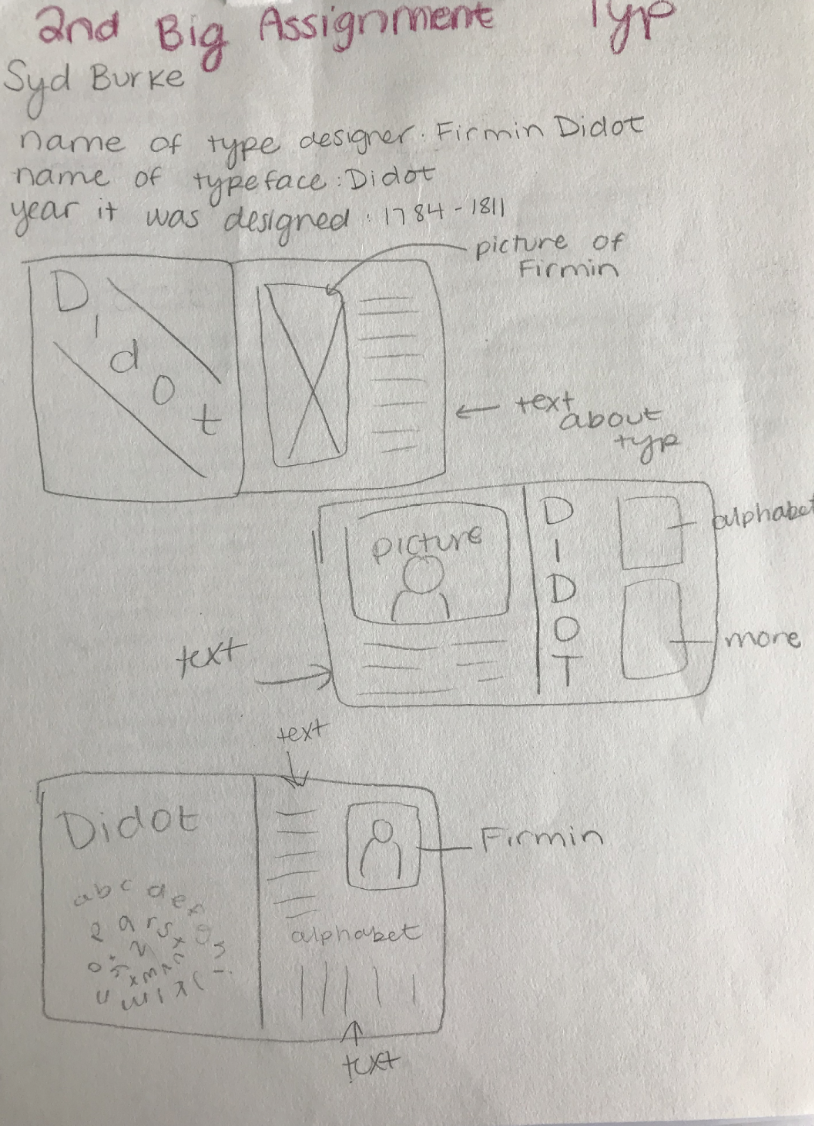 2nd Big Assignment Typ
Syd Burke
name of type designer: Firmin Didot
name of typeface: Didot
year it was designed: 1784-1811
picture of
Firmin
Didot
text
about
typ
picture
DIDOT
alphabet
more
text
text
Didot
Firmin
abcdef
alphabet
text